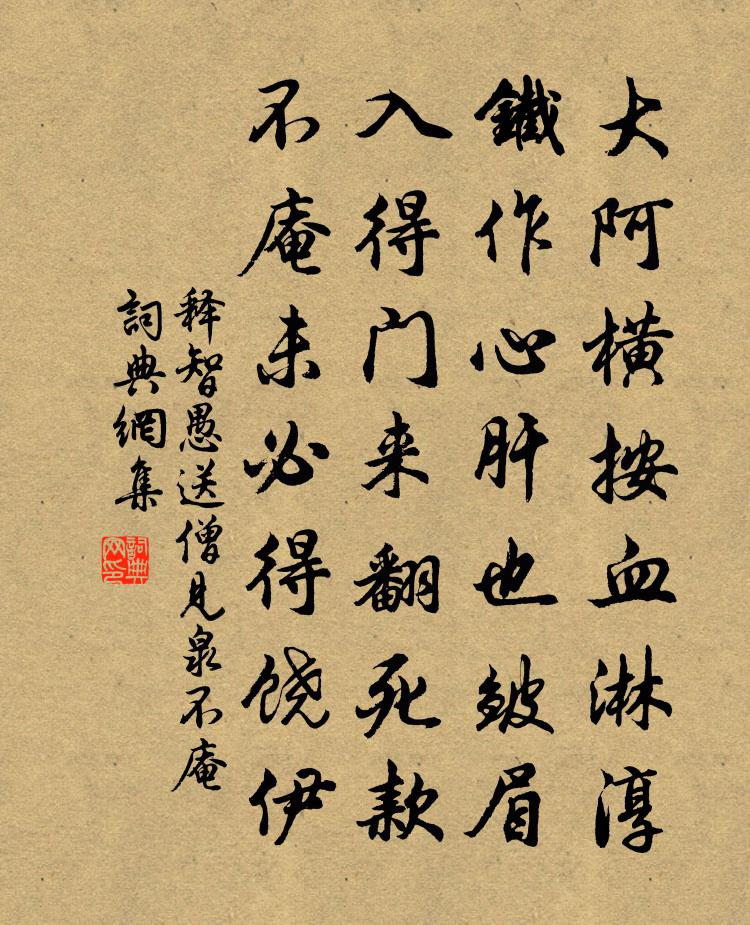 大阿横按血淋淳
鐵作心肝也皱眉
入得门来翻死款
不庵未必得饶伊
释智愚送僧见泉不庵
詞典網集
詞典网印